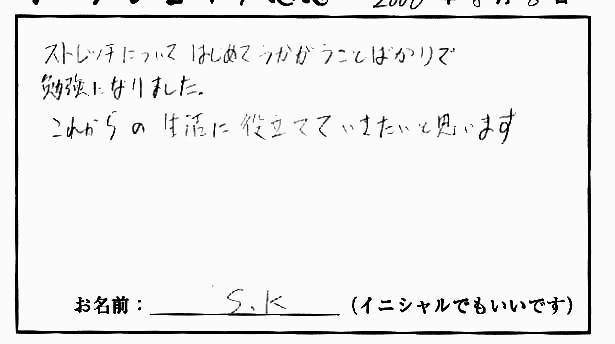 ストレッチについてはじめてうかがうことばかりで
勉強になりました。
これからの生活に役立てていきたいと思います
お名前：S.K（イニシャルでもいいです）